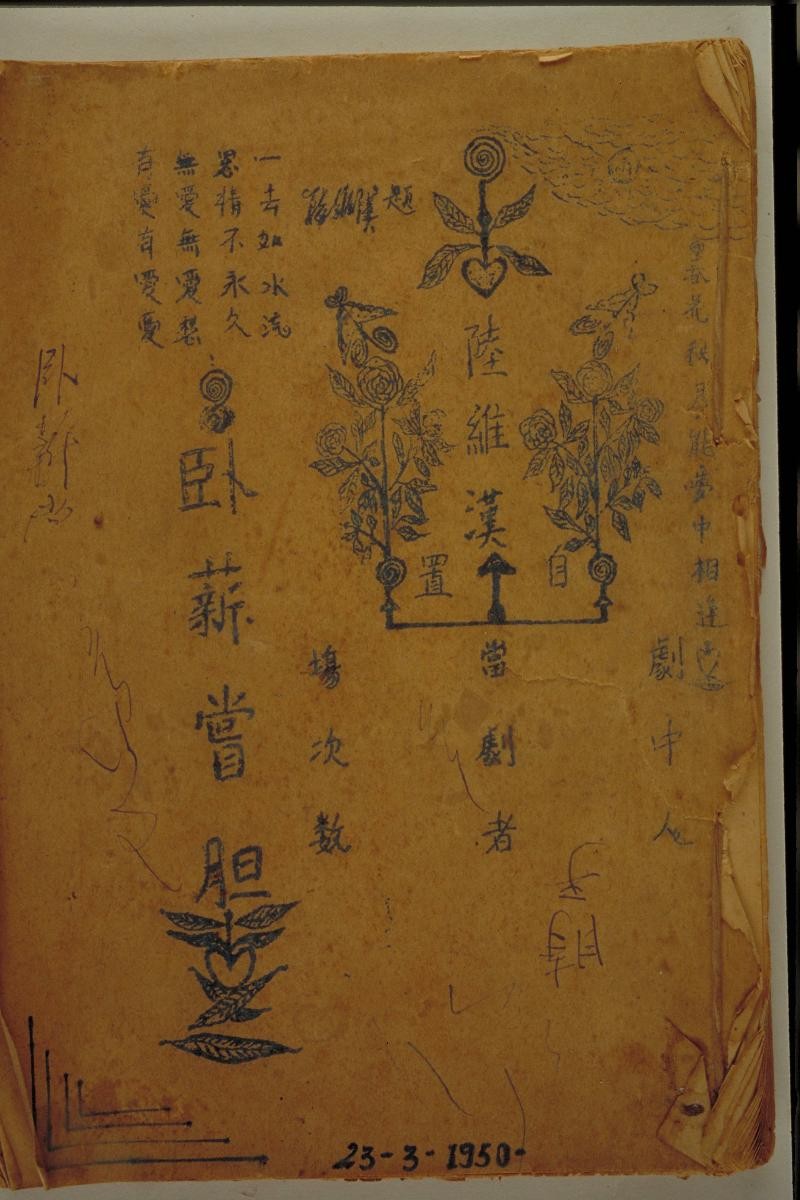 春花秋月能夢中相逢
劇中人
陸維漢
自置
當劇者
場次数
題
一去如水流
恩情不永久
無愛無愛愁
有愛有愛憂
卧薪嘗胆
卧
23-3-1950-